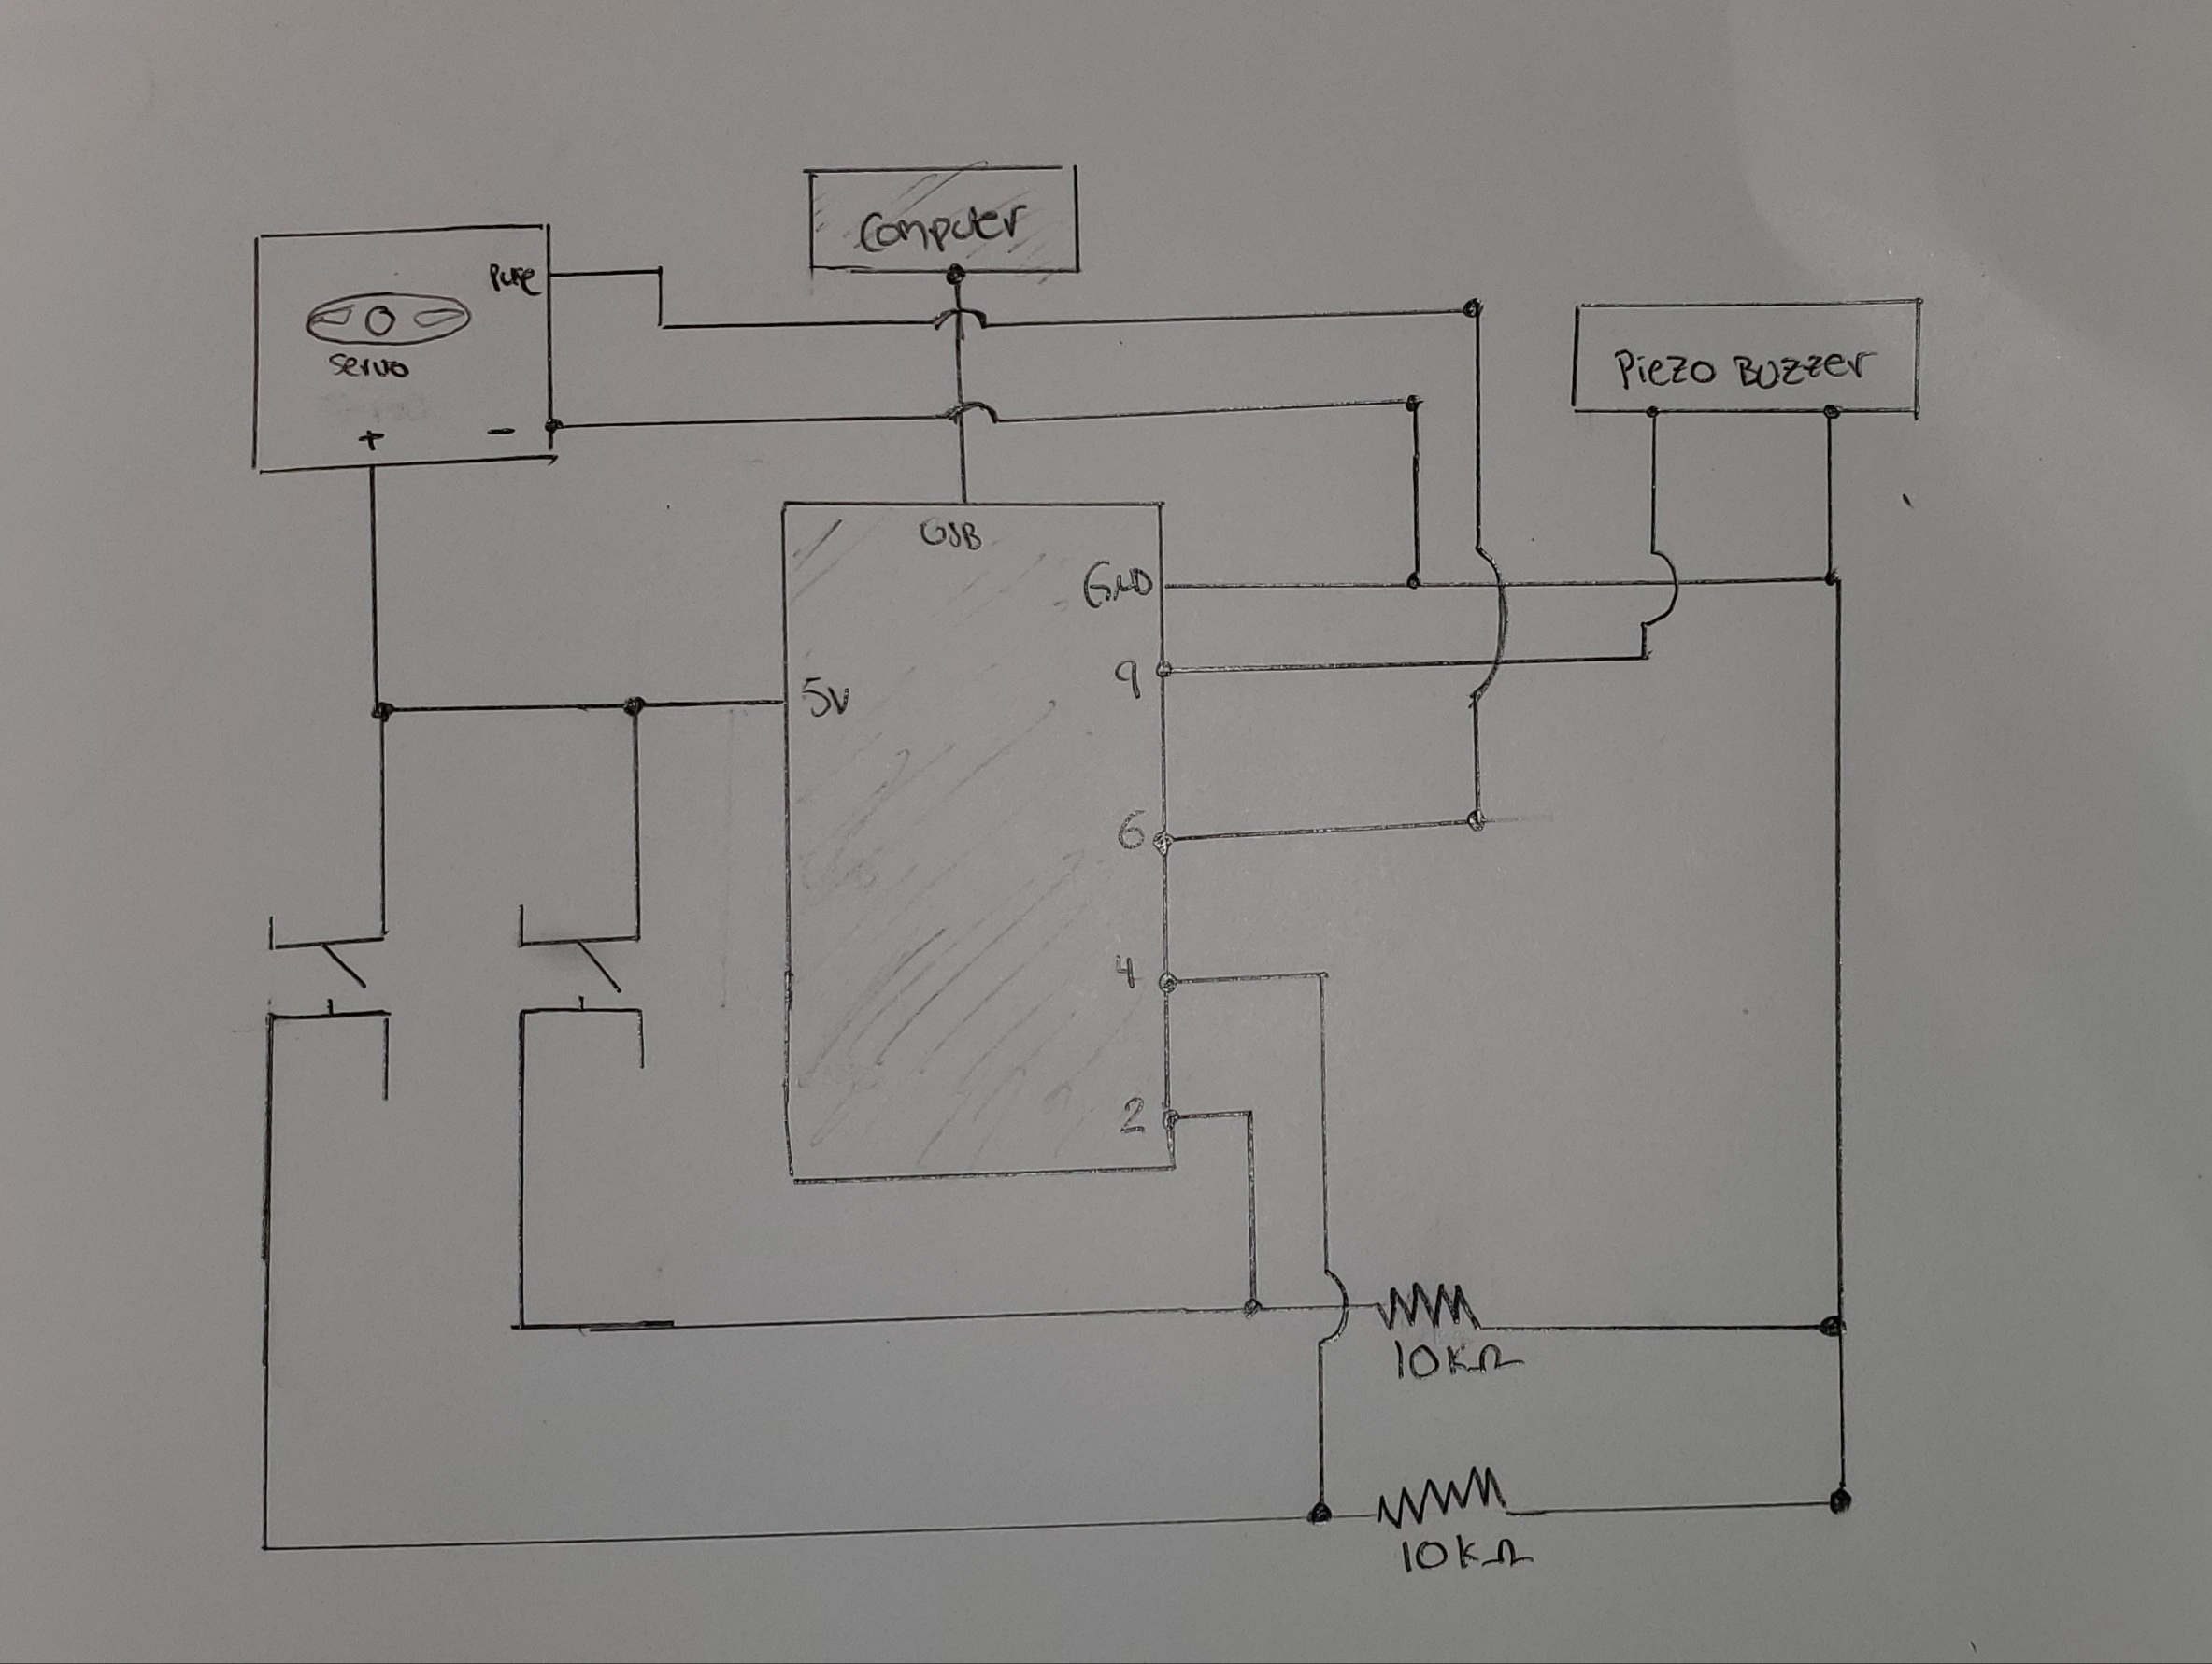 Computer
Pulse
servo
+ -
Piezo Buzzer
USB
GND
9
5v
6
4
2
10KΩ
10KΩ